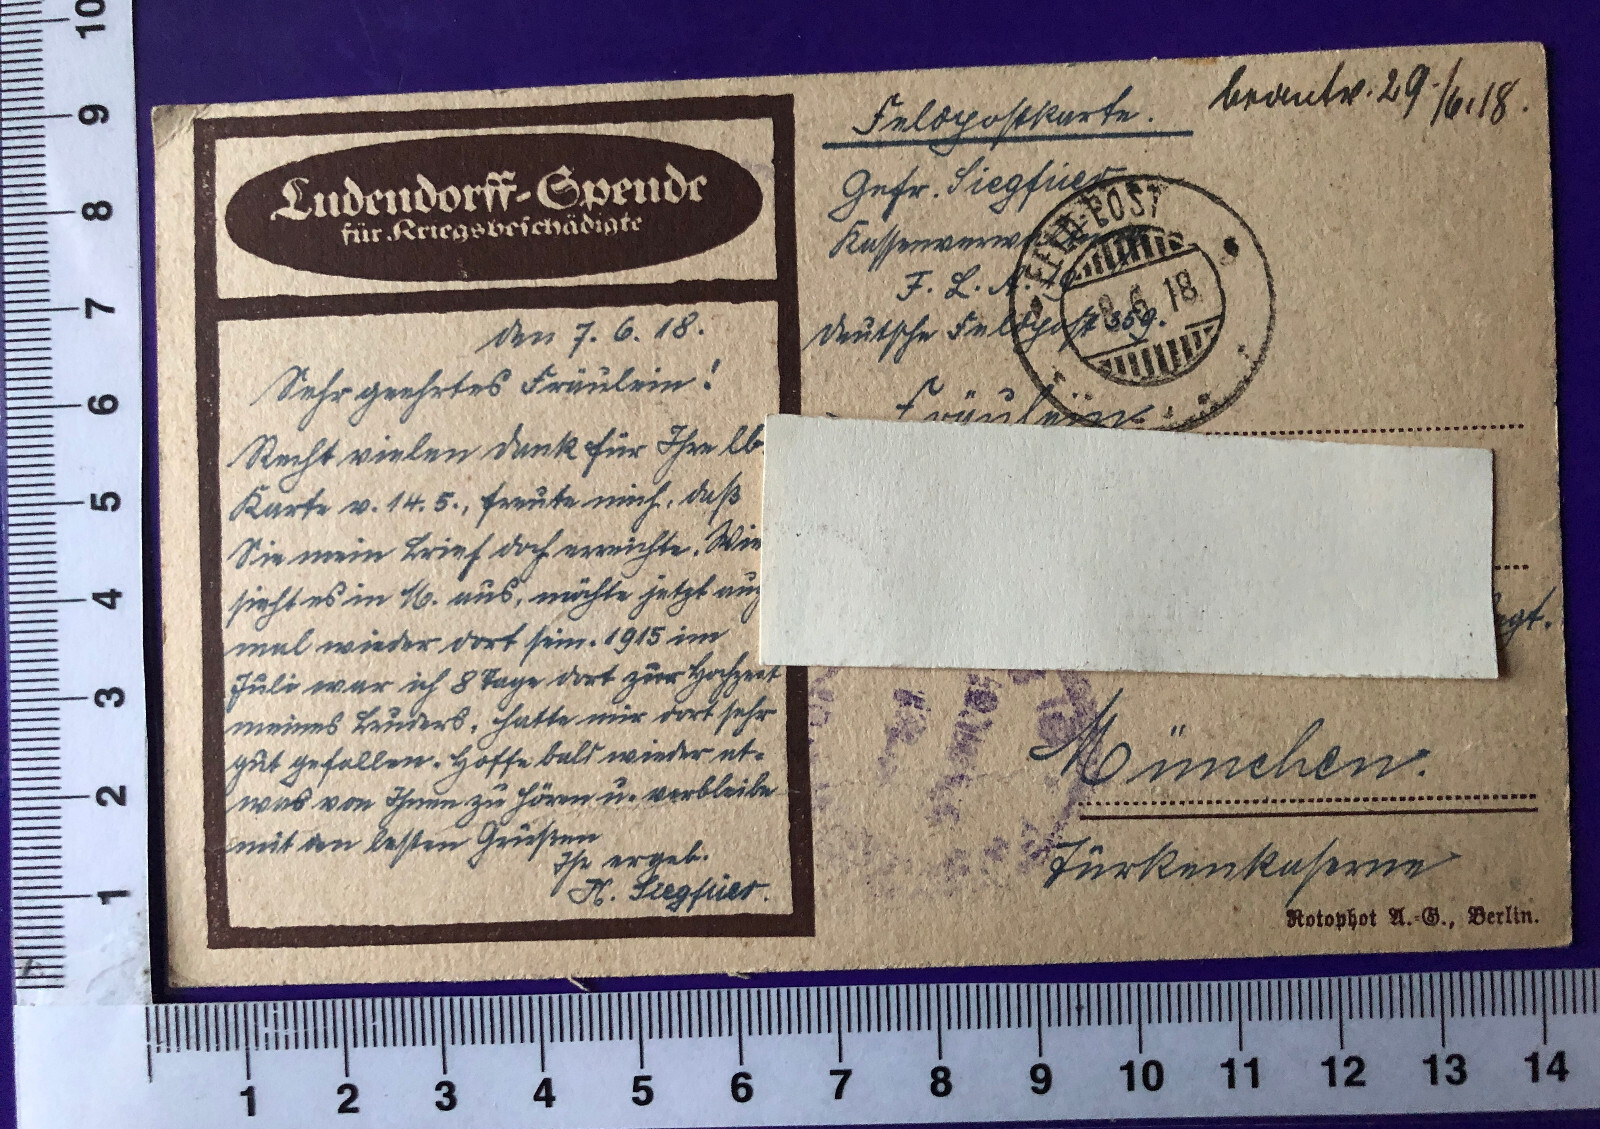 Ludendorff-Spende
für Kriegsbeschädigte
den 7. 6. 18.
Sehr geehrtes Fräulein!
Recht vielen Dank für Ihre lb.
Karte v. 14. 5., freute mich, daß
Sie mein Brief doch erreichte. Wie
sieht es in M. aus, möchte jetzt auch
mal wieder dort sein. 1915 im
Juli war ich 8 Tage dort zur Hochzeit
meines Bruders, hatte mir dort sehr
gut gefallen. Hoffe bald wieder et-
was von Ihnen zu hören u. verbleibe
mit den besten Grüßen
Ihr ergeb.
beantw. 29./6.18.
Feldpostkarte.
Gefr.
F. L. A. 19
Deutsche Feldpost 359.
FELD-POST
8 6 18
Fräulein
München.
Türkenkaserne
Rotophot A.-G., Berlin.
10
9
8
7
6
5
4
3
2
1
1 2 3 4 5 6 7 8 9 10 11 12 13 14